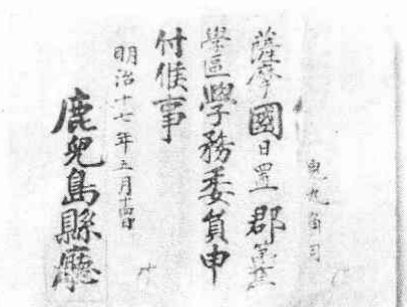 薩摩國日置郡
學區學務委員申
付候事
明治十七年五月十四日
鹿兒島縣廳